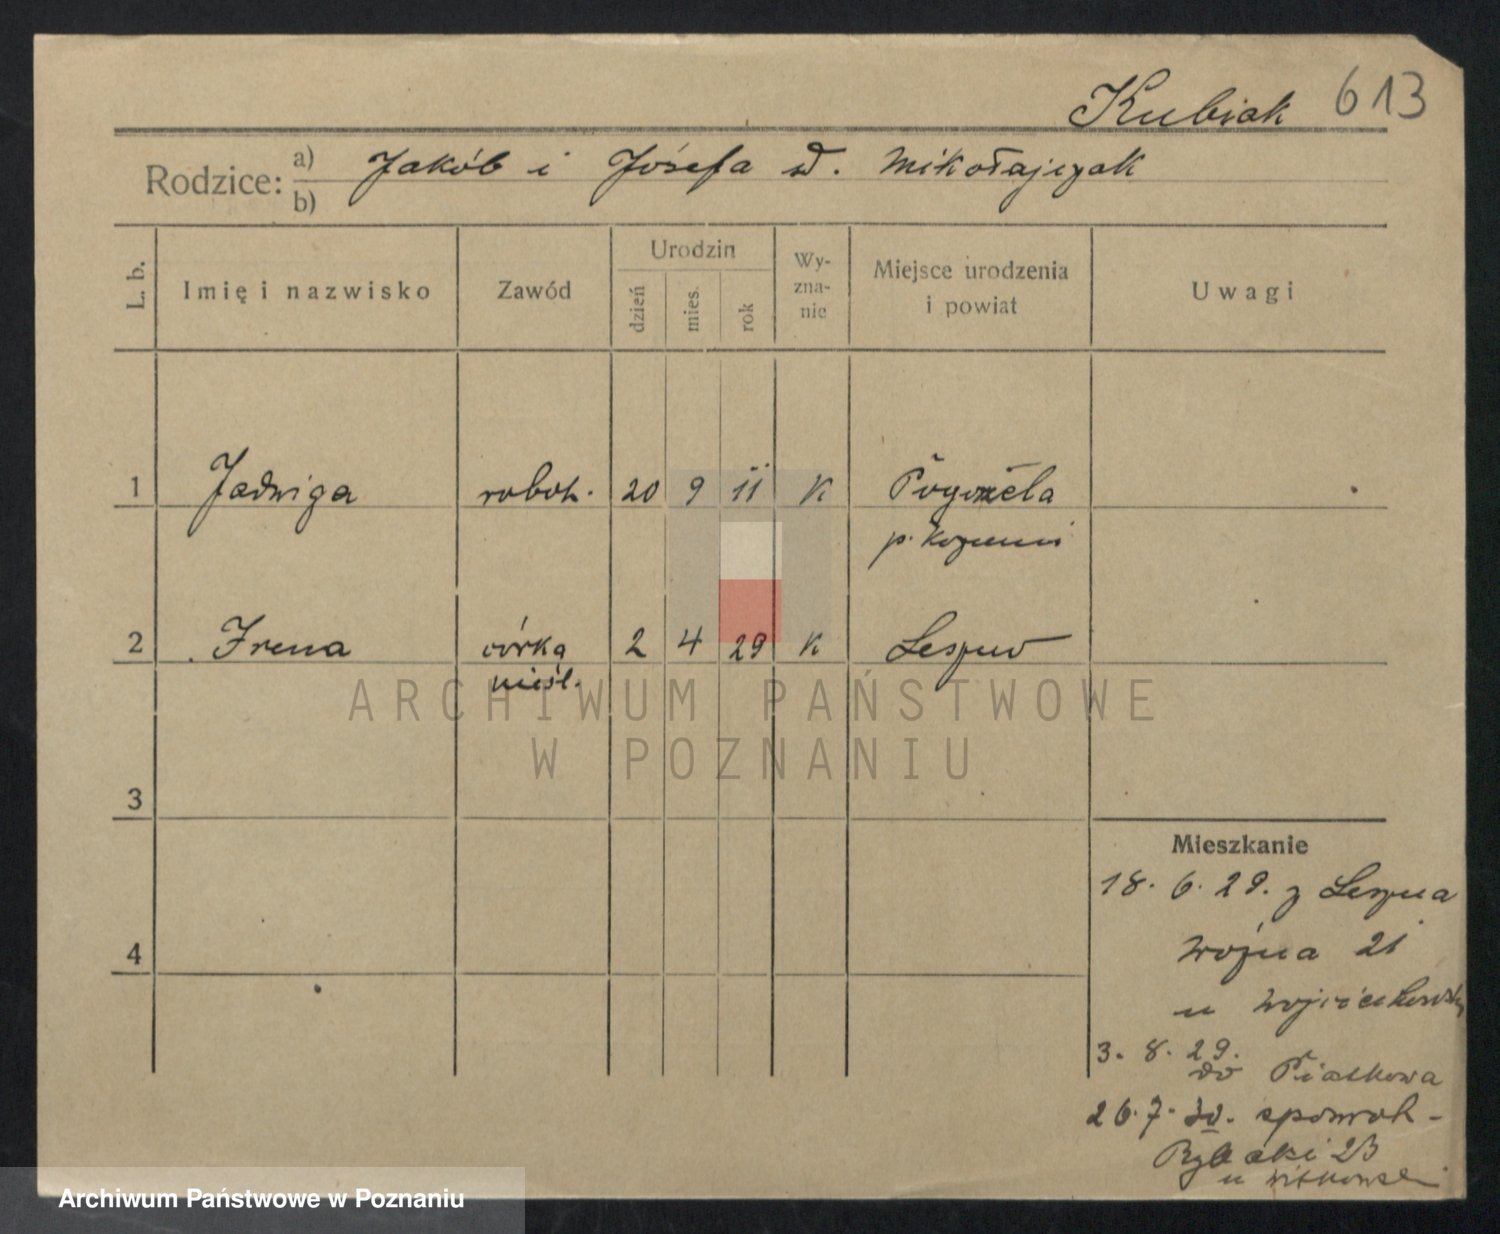 Kubiak 613
Rodzice: a) b) Jakób i Józefa d. Mikołajczak
L. b.
Imię i nazwisko
Zawód
Urodzin
dzień
mies.
rok
Wy-
zna-
nie
Miejsce urodzenia
i powiat
Uwagi
1 Jadwiga robotn. 20 9 11 K Pogorzela
p. Koźmin
2 Irena córka 2 4 29 K Leszno
nieśl.
ARCHIWUM PAŃSTWOWE
W POZNANIU
3
Mieszkanie
18. 6. 29. z Leszna
4
Woźna 21
u Wojciechowski
3. 8. 29.
do Piatkowa
26. 7. 30. spowrot-
Rybaki 23
u Witkowski
Archiwum Państwowe w Poznaniu